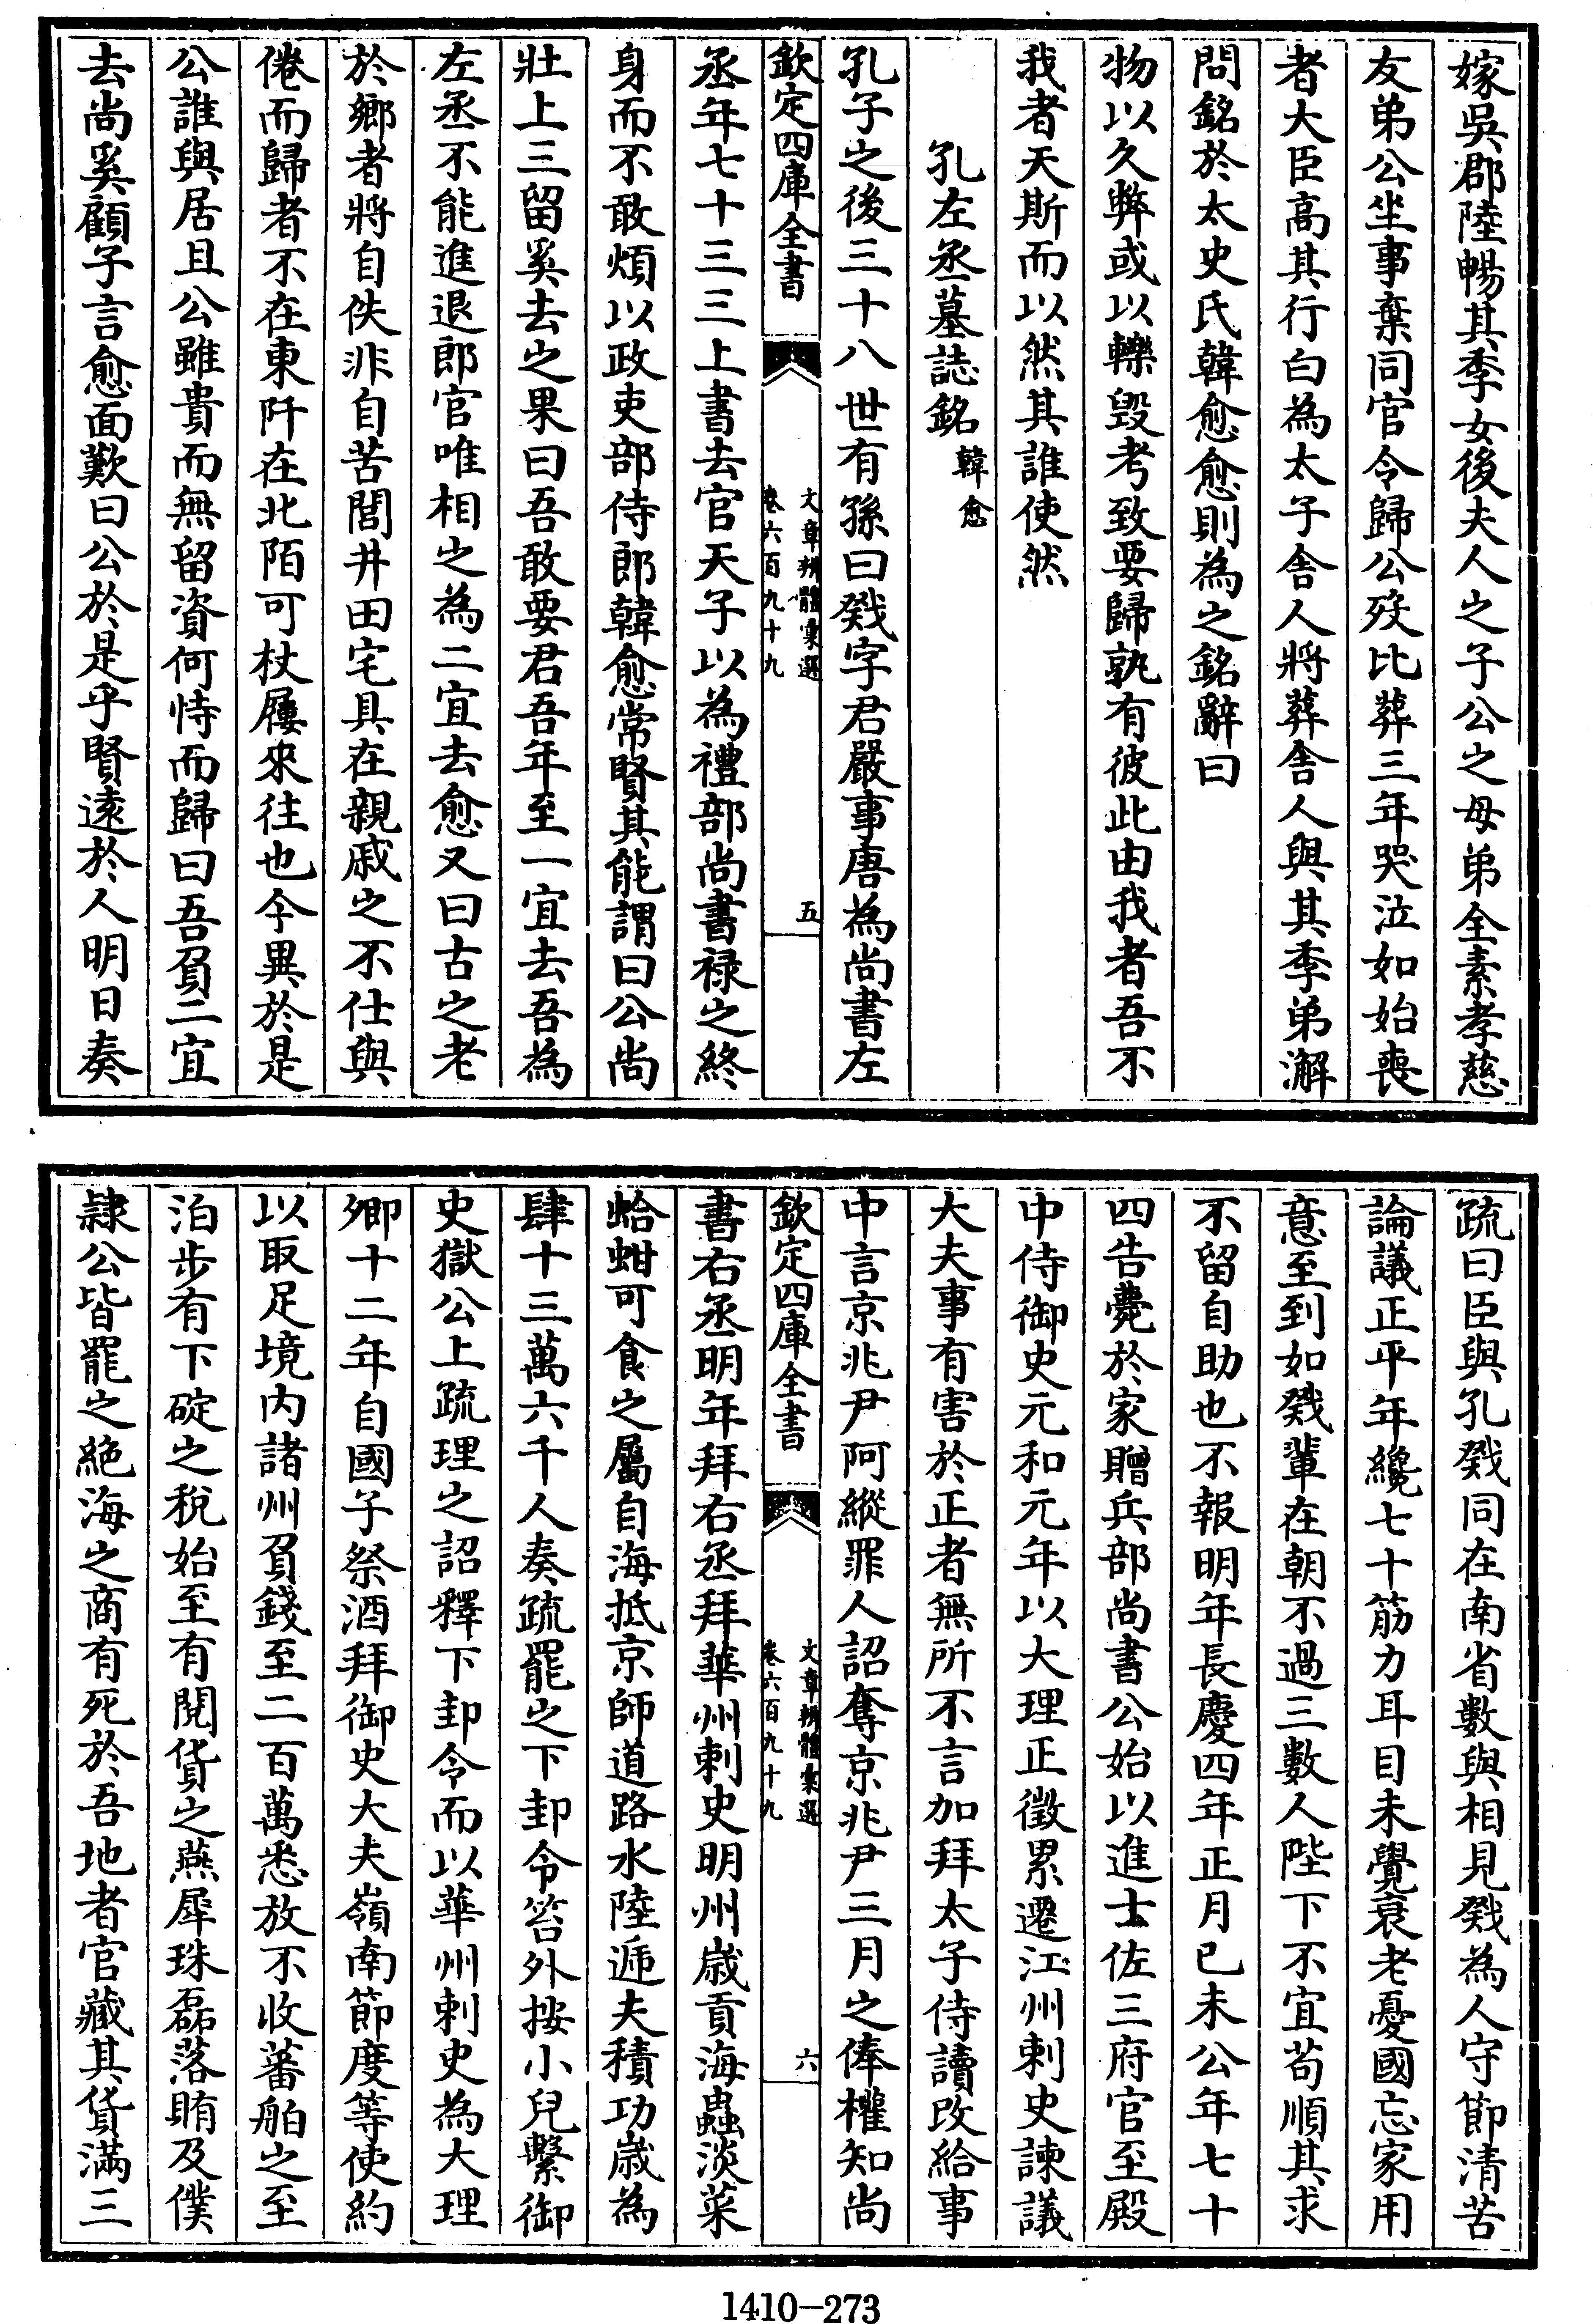 嫁吳郡陸暢其季女後夫人之子公之母弟全素孝慈
友弟公坐事棄同官令歸公歿比葬三年哭泣如始喪
者大臣高其行白為太子舍人將葬舍人與其季弟澥
問銘於太史氏韓愈愈則為之銘辭曰
物以久弊或以轢毀考致要歸孰有彼此由我者吾不
我者天斯而以然其誰使然
孔左丞墓誌銘 韓愈
孔子之後三十八世有孫曰戣字君嚴事唐為尚書左
欽定四庫全書 文章辨體彙選 卷六百九十九 五
丞年七十三三上書去官天子以為禮部尚書禄之終
身而不敢煩以政吏部侍郎韓愈常賢其能謂曰公尚
壯上三留奚去之果曰吾敢要君吾年至一宜去吾為
左丞不能進退郎官唯相之為二宜去愈又曰古之老
於鄉者將自佚非自苦閭井田宅具在親戚之不仕與
倦而歸者不在東阡在北陌可杖屨來往也今異於是
公誰與居且公雖貴而無留資何恃而歸曰吾負二宜
去尚奚顧子言愈面歎曰公於是乎賢遠於人明日奏
疏曰臣與孔戣同在南省數與相見戣為人守節清苦
論議正平年纔七十筋力耳目未覺衰老憂國忘家用
意至到如戣輩在朝不過三數人陛下不宜苟順其求
不留自助也不報明年長慶四年正月已未公年七十
四告薨於家贈兵部尚書公始以進士佐三府官至殿
中侍御史元和元年以大理正徵累遷江州刺史諫議
大夫事有害於正者無所不言加拜太子侍讀改給事
中言京兆尹阿縱罪人詔奪京兆尹三月之俸權知尚
欽定四庫全書 文章辨體彙選 卷六百九十九 六
書右丞明年拜右丞拜華州刺史明州歲貢海蟲淡菜
蛤蚶可食之屬自海抵京師道路水陸遞夫積功歲為
肆十三萬六千人奏疏罷之下邽令笞外按小兒繫御
史獄公上疏理之詔釋下邽令而以華州刺史為大理
卿十二年自國子祭酒拜御史大夫嶺南節度等使約
以取足境内諸州負錢至二百萬悉放不收蕃舶之至
泊步有下碇之稅始至有閱貨之燕犀珠磊落賄及僕
隸公皆罷之絶海之商有死於吾地者官藏其貨滿三
1410-273